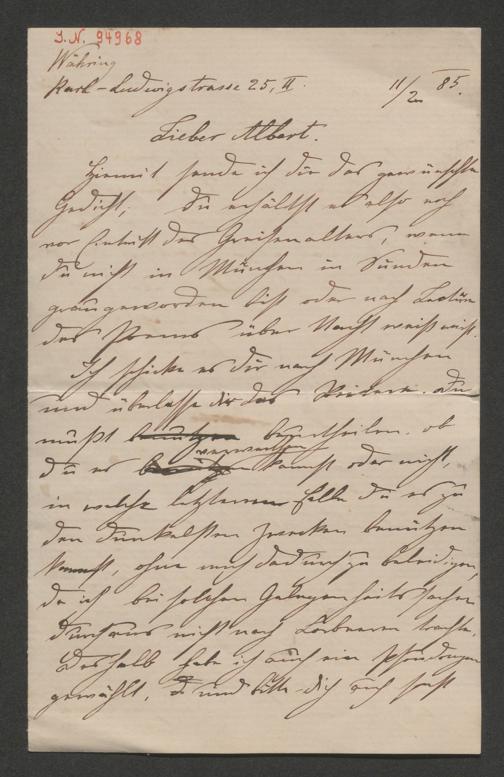 I.N. 94968
Währing
Karl-Ludwigstrasse 25, II.
11/2 85.
Lieber Albert.
Hiemit sende ich dir das gewünschte
Gedicht; du erhältst es also noch
vor Eintritt des Greisenalters, wenn
du nicht in München in Sünden
graugeworden bist oder nach Lectüre
des Poems über Nacht weiß wirst.
Ich schicke es dir nach München
und überlasse dir das Weitere. Du
mußt beurtheilen, ob
du es verwenden kannst oder nicht,
in welch letzterem Falle du es zu
den dunkelsten Zwecken benützen
kannst, ohne mich dadurch zu beleidigen,
da ich bei solchen Gelegenheitssachen
durchaus nicht nach Lorbeeren trachte.
Deshalb habe ich auch ein Pseudonym
gewählt, und bitte dich auch sonst